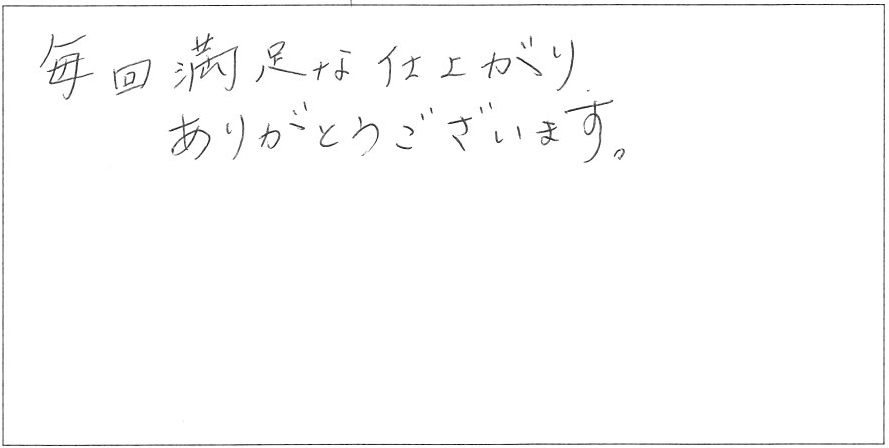 毎回満足な仕上がり
ありがとうございます。